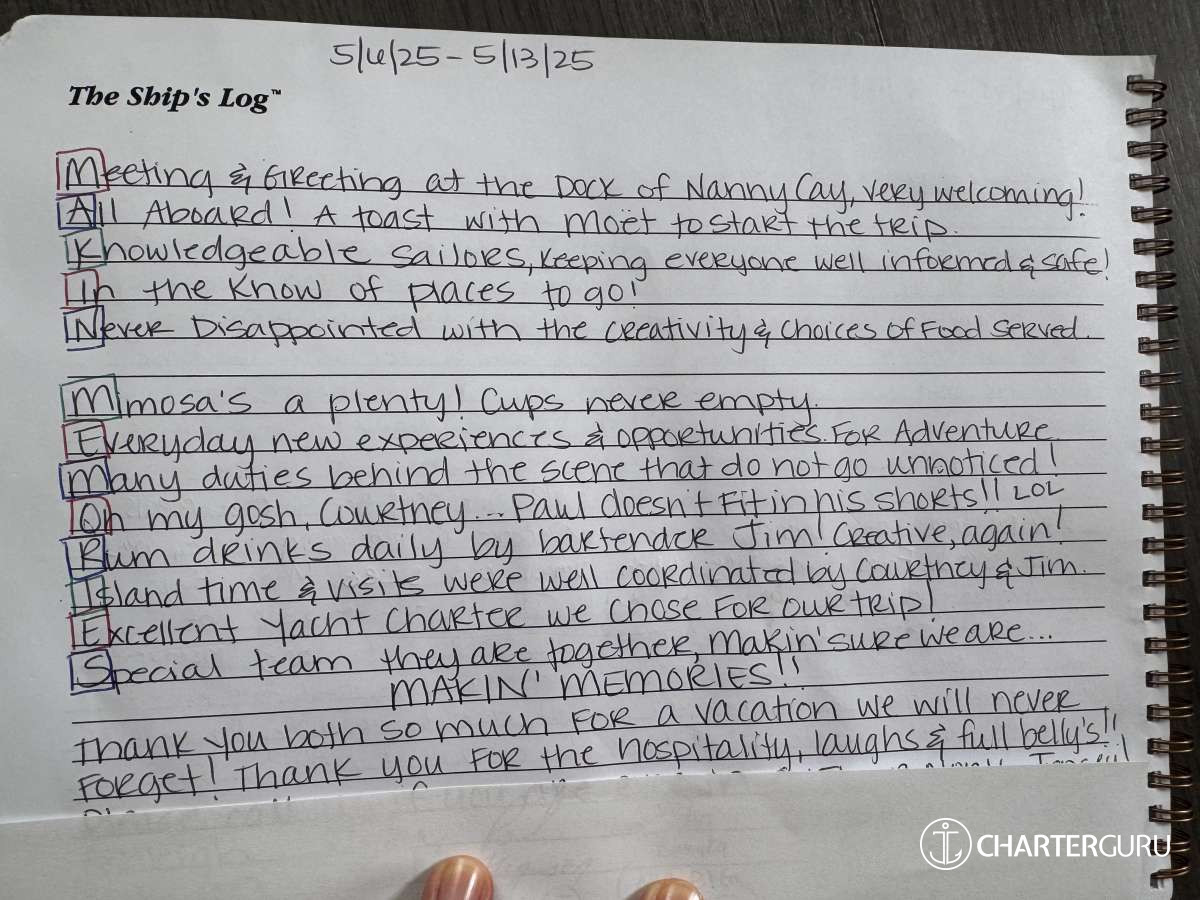 5/6/25 - 5/13/25
The Ship's Log™
Meeting & Greeting at the Dock of Nanny Cay, very welcoming!
All Aboard! A toast with Moët to start the trip.
Knowledgeable sailors, keeping everyone well informed & safe!
In the know of places to go!
Never Disappointed with the creativity & choices of food served.
Mimosa's a plenty! Cups never empty.
Everyday new experiences & opportunities for Adventure
Many duties behind the scene that do not go unnoticed!
Oh my gosh, Courtney... Paul doesn't fit in his shorts!! LOL
Rum drinks daily by bartender Jim! Creative, again!
Island time & visits were well coordinated by Courtney & Jim.
Excellent Yacht Charter we chose for our trip!
Special team they are together, makin' sure we are...
MAKIN' MEMORIES!!
Thank you both so much for a vacation we will never
forget! Thank you for the hospitality, laughs & full belly's!!
CHARTERGURU